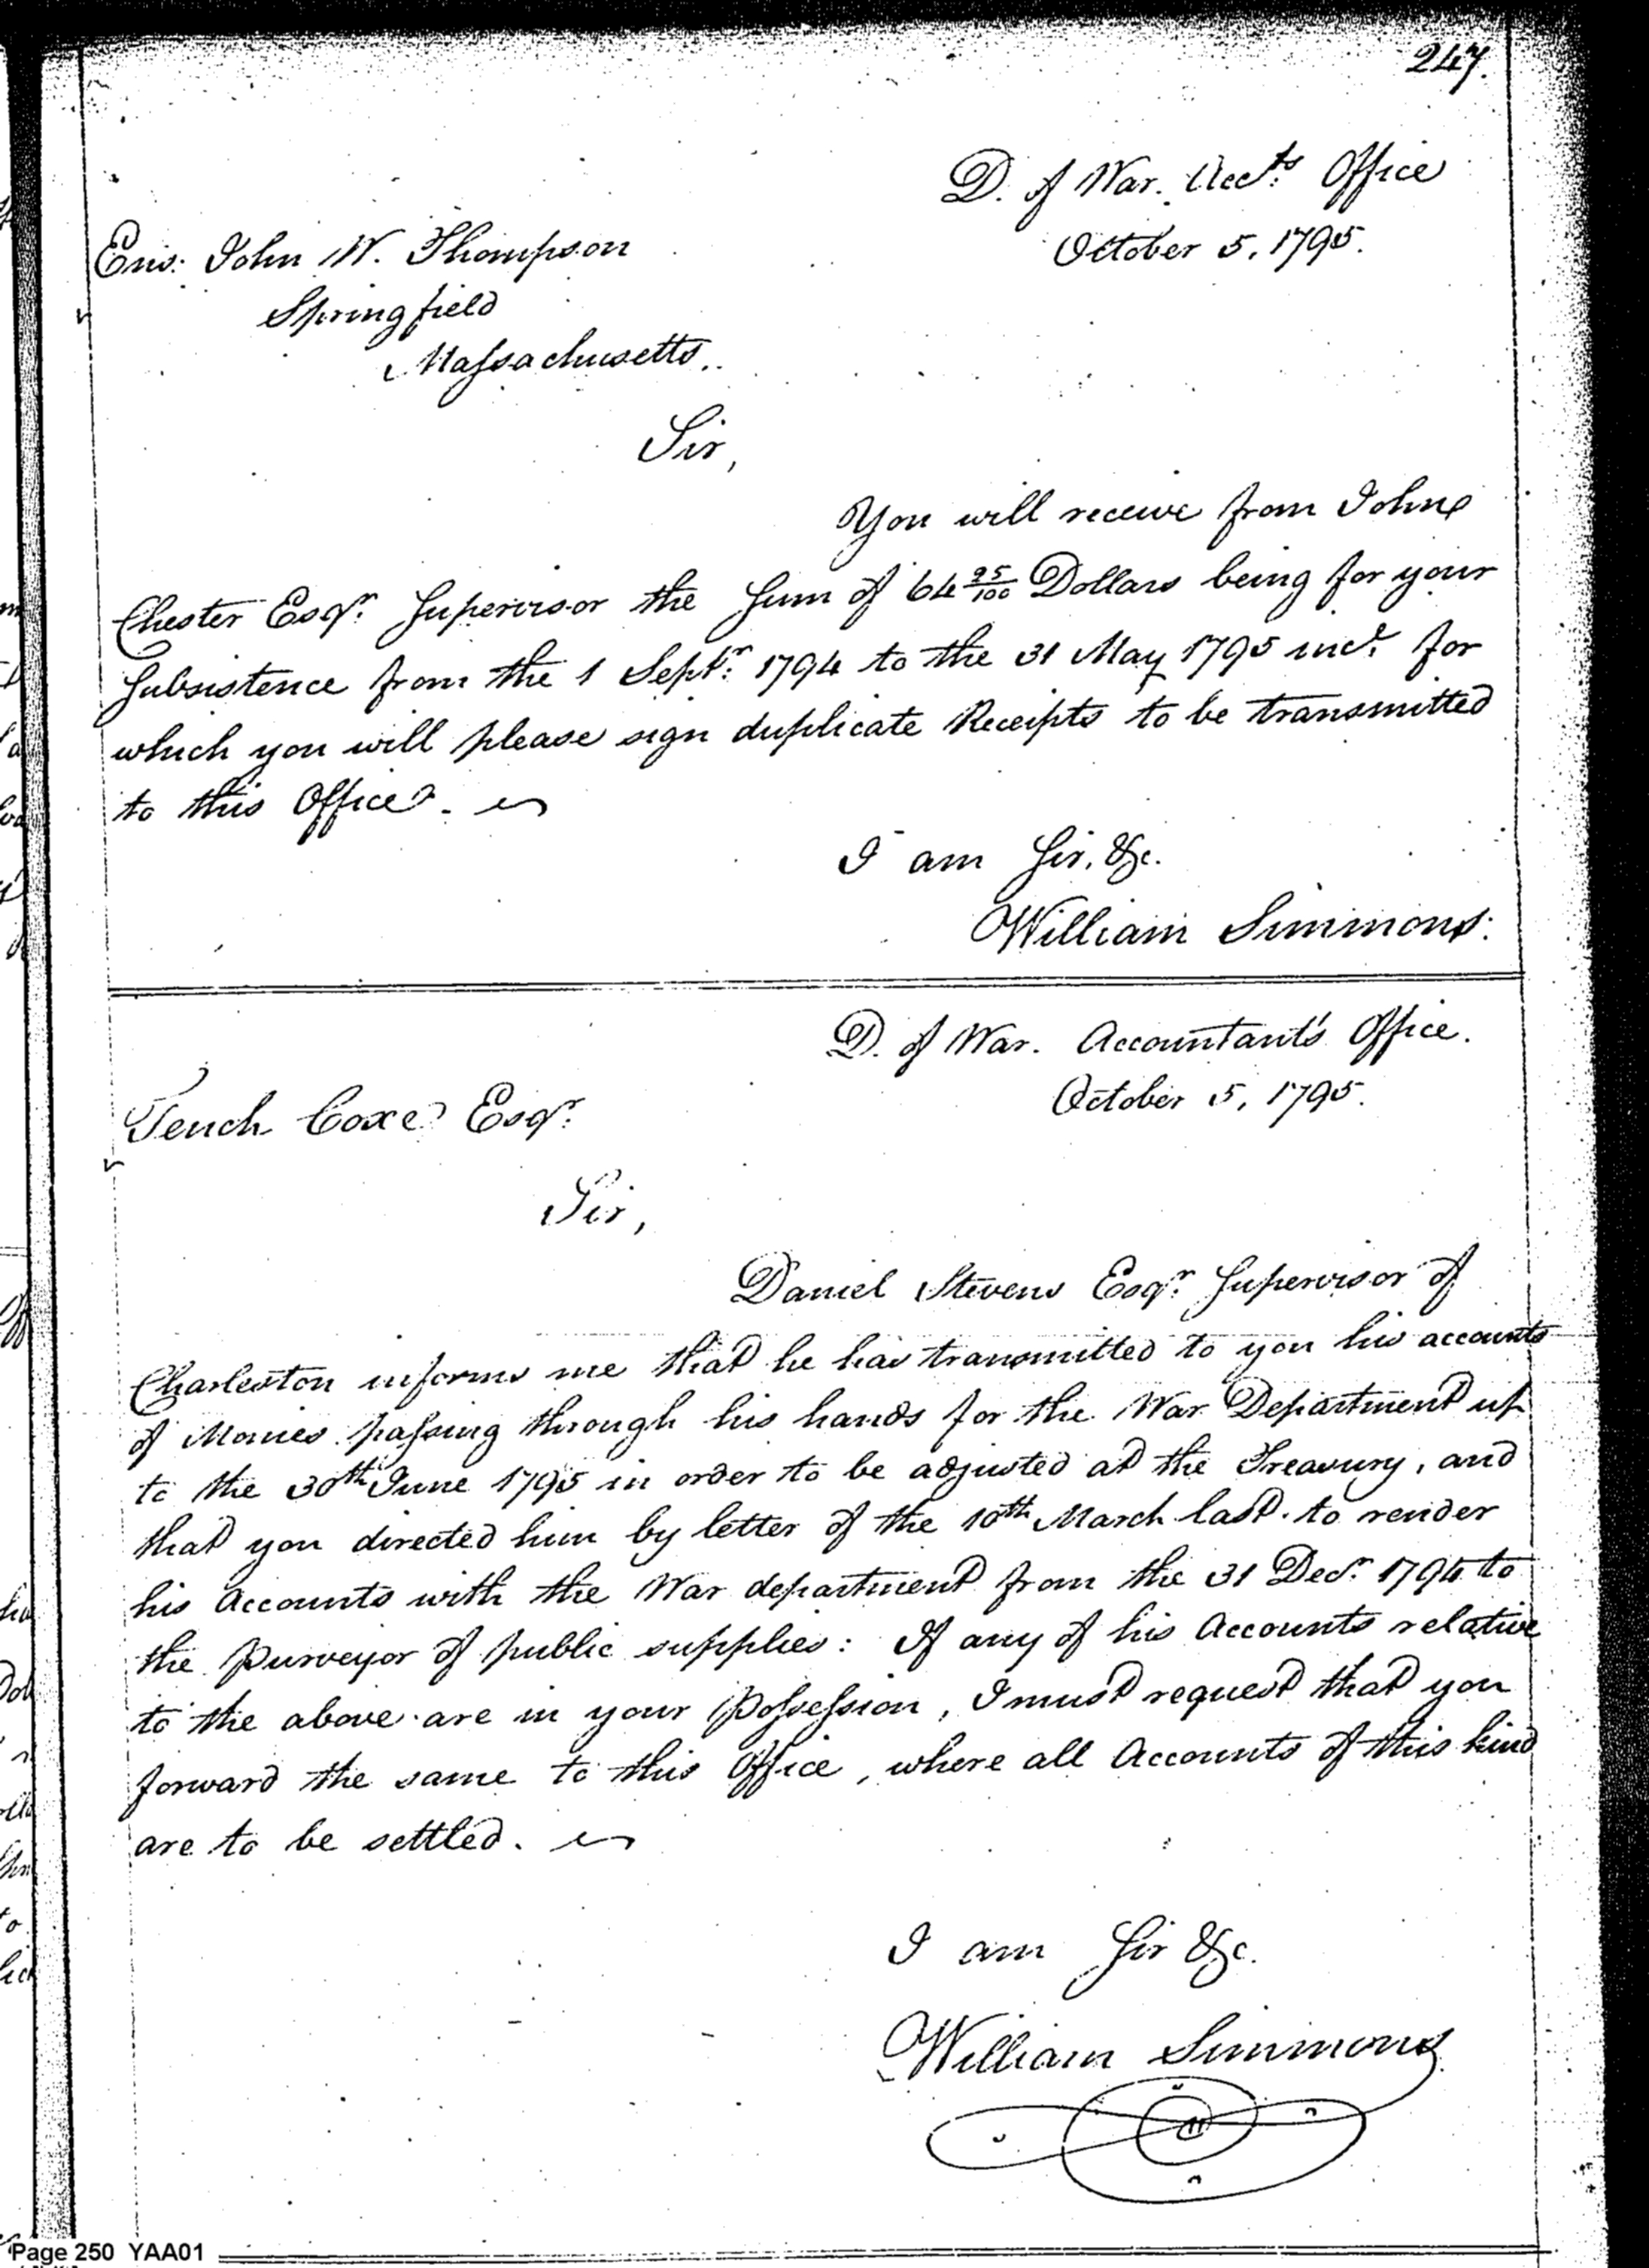 247.
D. of War. Accts. Office
October 5, 1795.
Ens: John W. Thompson
Springfield
Massachusetts.
Sir,
You will receive from John
Chester Esqr. Supervisor the Sum of 64 25/100 Dollars being for your
Subsistence from the 1 Septr. 1794 to the 31 May 1795 incl. for
which you will please sign duplicate Receipts to be transmitted
to this Office.
I am Sir, &c.
William Simmons.
D. of War. Accountant's Office.
October 5, 1795.
Tench Coxe Esqr.
Sir,
Daniel Stevens Esqr. Supervisor of
Charleston informs me that he has transmitted to you his accounts
of Monies passing through his hands for the War Department up
to the 30th June 1795 in order to be adjusted at the Treasury, and
that you directed him by letter of the 10th March last. to render
his Accounts with the War department from the 31 Decr. 1794 to
the Purveyor of public supplies: If any of his Accounts relative
to the above are in your Possession, I must request that you
forward the same to this Office, where all Accounts of this kind
are to be settled.
I am Sir &c.
William Simmons
Page 250 YAA01